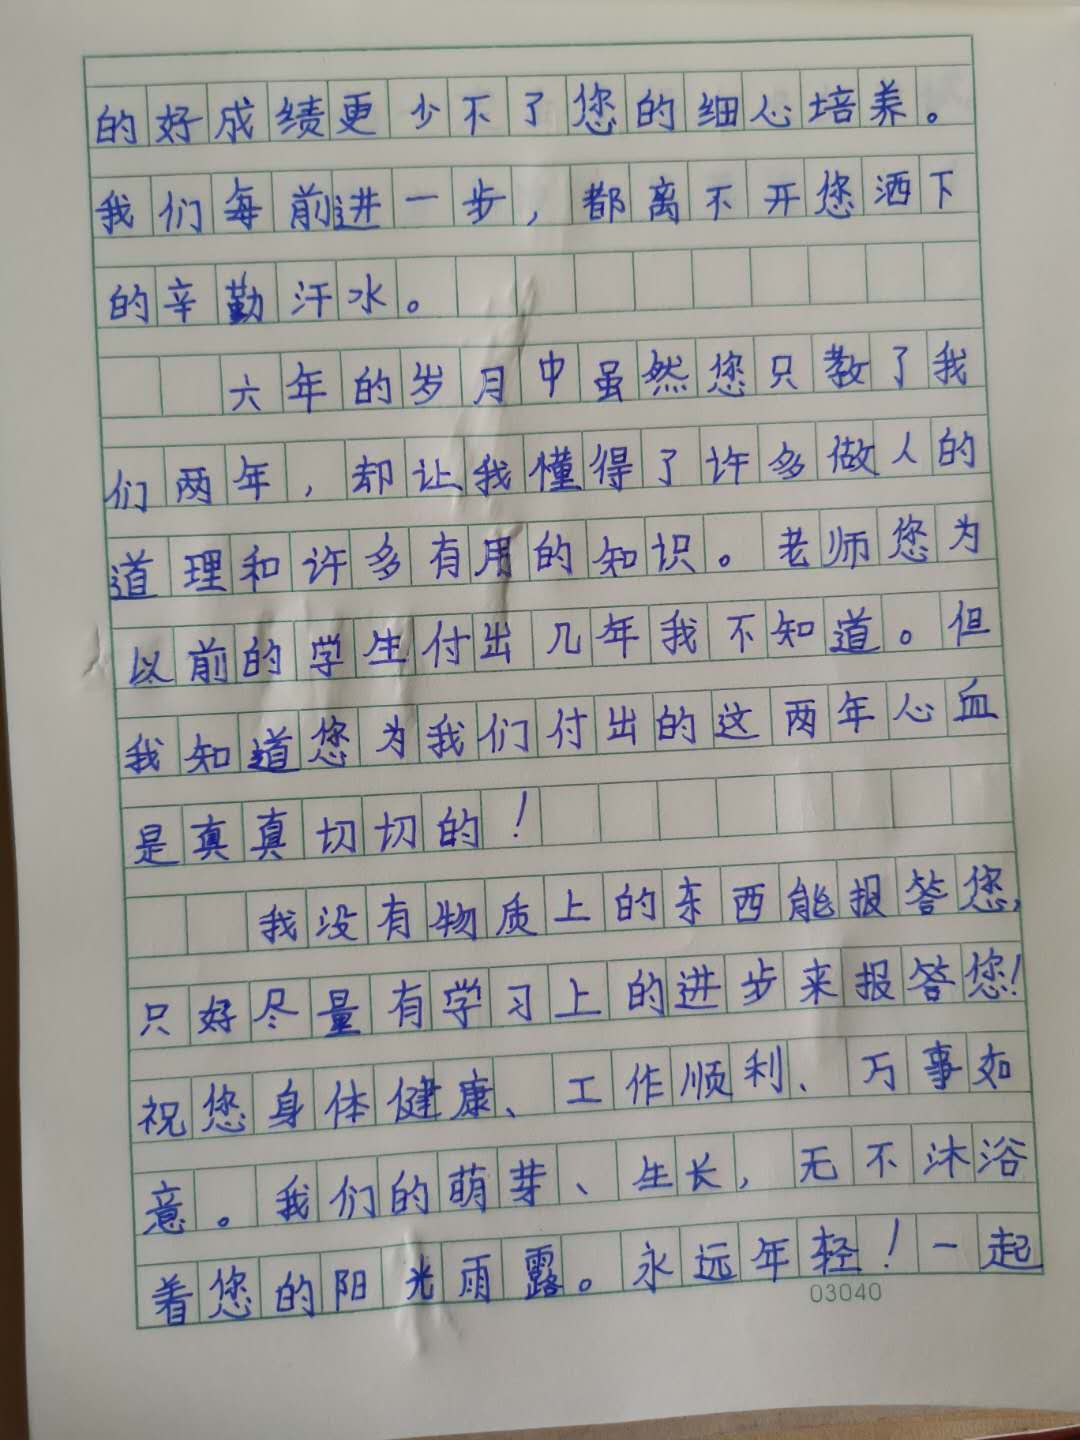 的好成绩更少不了您的细心培养。
我们每前进一步，都离不开您洒下
的辛勤汗水。
六年的岁月中虽然您只教了我
们两年，却让我懂得了许多做人的
道理和许多有用的知识。老师您为
以前的学生付出几年我不知道。但
我知道您为我们付出的这两年心血
是真真切切的！
我没有物质上的东西能报答您，
只好尽量有学习上的进步来报答您！
祝您身体健康、工作顺利、万事如
意。我们的萌芽、生长，无不沐浴
着您的阳光雨露。永远年轻！一起
03040